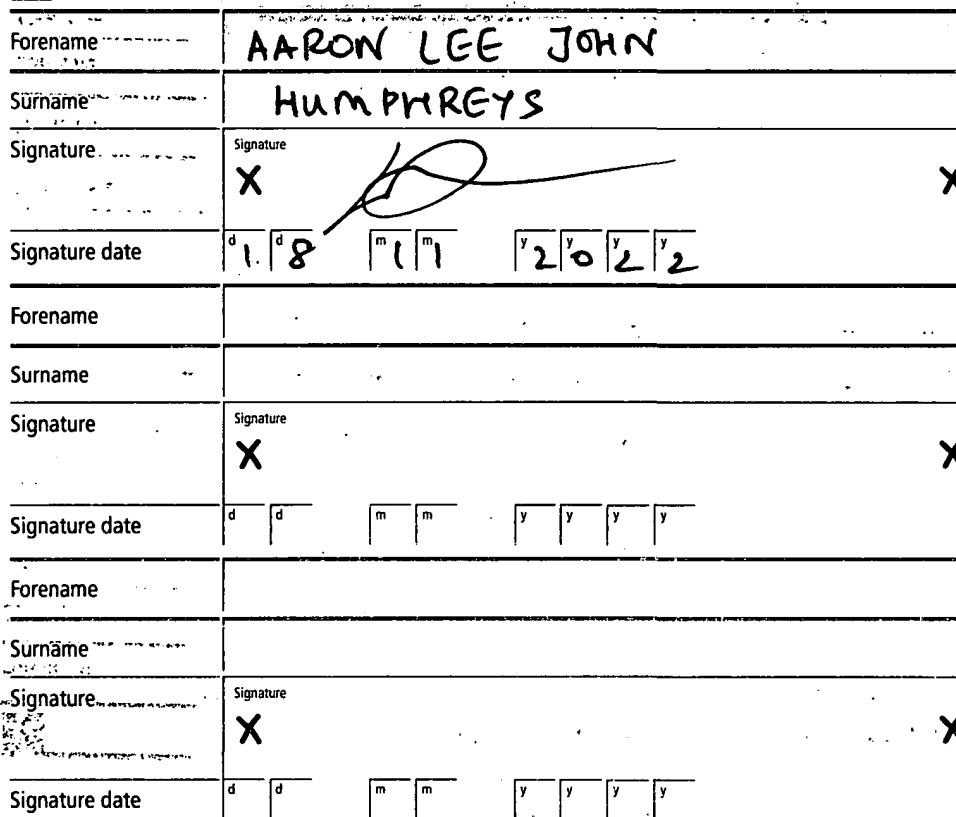 Forename AARON LEE JOHN
Surname HUMPHREYS
Signature Signature
X X
Signature date d 1 d 8 m 1 m 1 y 2 y 0 y 2 y 2
Forename
Surname
Signature Signature
X X
Signature date d d m m y y y y
Forename
Surname
Signature Signature
X X
Signature date d d m m y y y y